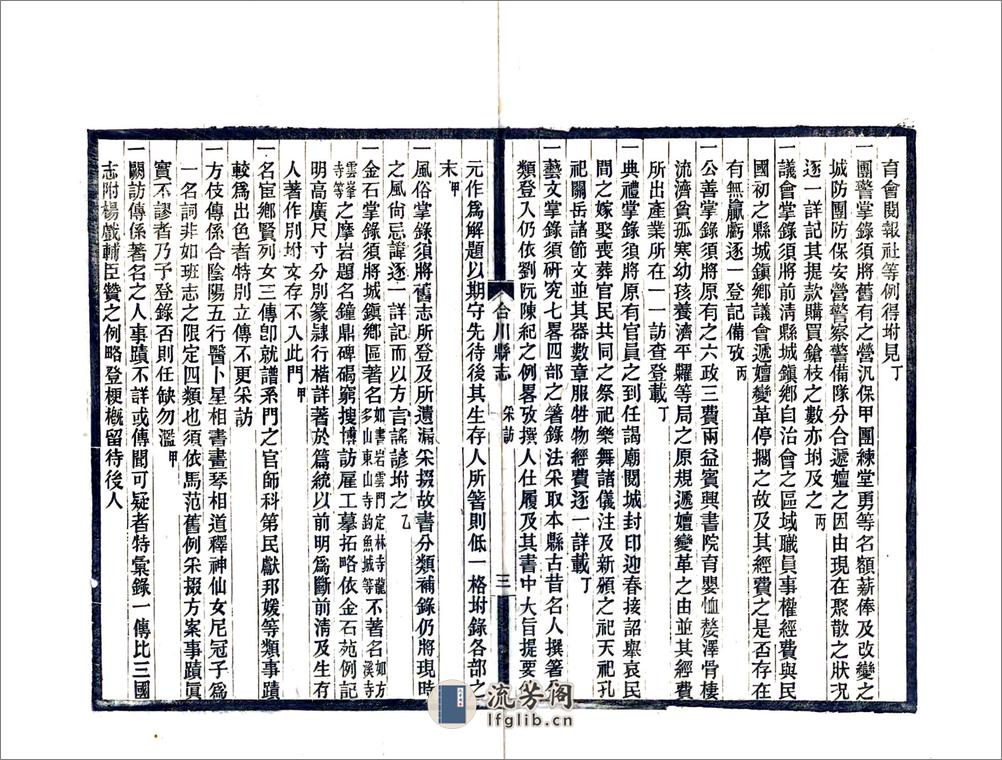 育會閱報社等例得坿見丁
一團警掌錄須將舊有之營汛保甲團練堂勇等名額薪俸及改變之
城防團防保安營警察警備隊分合遞嬗之因由現在聚散之狀況
逐一詳記其提款購買鎗枝之數亦坿及之丙
一議會掌錄須將前清縣城鎮鄉自治會之區域職員事權經費與民
國初之縣城鎮鄉議會遞嬗變革停擱之故及其經費之是否存在
有無贏虧逐一登記備攷丙
一公善掌錄須將原有之六政三費兩益賓興書院育嬰恤嫠澤骨棲
流濟貧孤寒幼孩養濟平糶等局之原規遞嬗變革之由並其經費
所出產業所在一一訪查登載丁
一典禮掌錄須將原有官員之到任謁廟閱城封印迎春接詔禦哀民
間之嫁娶喪葬官民共同之祭祀樂舞諸儀注及新頒之祀天祀孔
祀關岳諸節文並其器數章服牲物經費逐一詳載丁
一藝文掌錄須研究七畧四部之箸錄法采取本縣古昔名人撰箸
類登入仍依劉阮陳紀之例畧攷撰人仕履及其書中大旨提要
合川縣志
采訪
三
元作爲解題以期守先待後其生存人所箸則低一格坿錄各部之
末甲
一風俗掌錄須將舊志所登及所遺漏采掇故書分類補錄仍將現時
之風尙忌諱逐一詳記而以方言謠諺坿之乙
一金石掌錄須將城鎮鄉區著名如書岩雲門定林寺龍多山東山寺釣魚城等不著名如方溪寺
雲峯寺等之摩岩題名鐘鼎碑碣窮搜博訪雇工摹拓略依金石苑例記
明高廣尺寸分別篆隷行楷詳著於篇統以前明爲斷前清及生存
人著作別坿文存不入此門甲
一名宦鄉賢列女三傳卽就譜系門之官師科第民獻邦媛等類事蹟
較爲出色者特別立傳不更采訪
一方伎傳係合陰陽五行醫卜星相書畫琴相道釋神仙女尼冠子爲
一名詞非如班志之限定四類也須依馬范舊例采掇方案事蹟眞
實不謬者乃予登錄否則任缺勿濫甲
一闕訪傳係著名之人事蹟不詳或傳聞可疑者特彙錄一傳比三國
志附楊戲輔臣贊之例略登梗槪留待後人
流芳阁
lfglib.cn